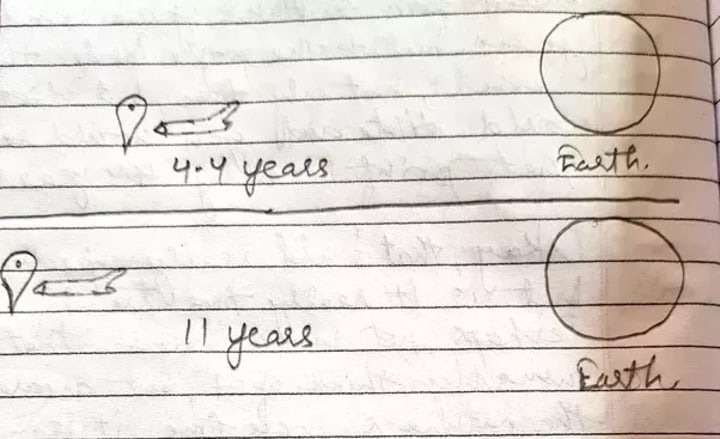 4.4 years
Earth.
11 years
Earth.